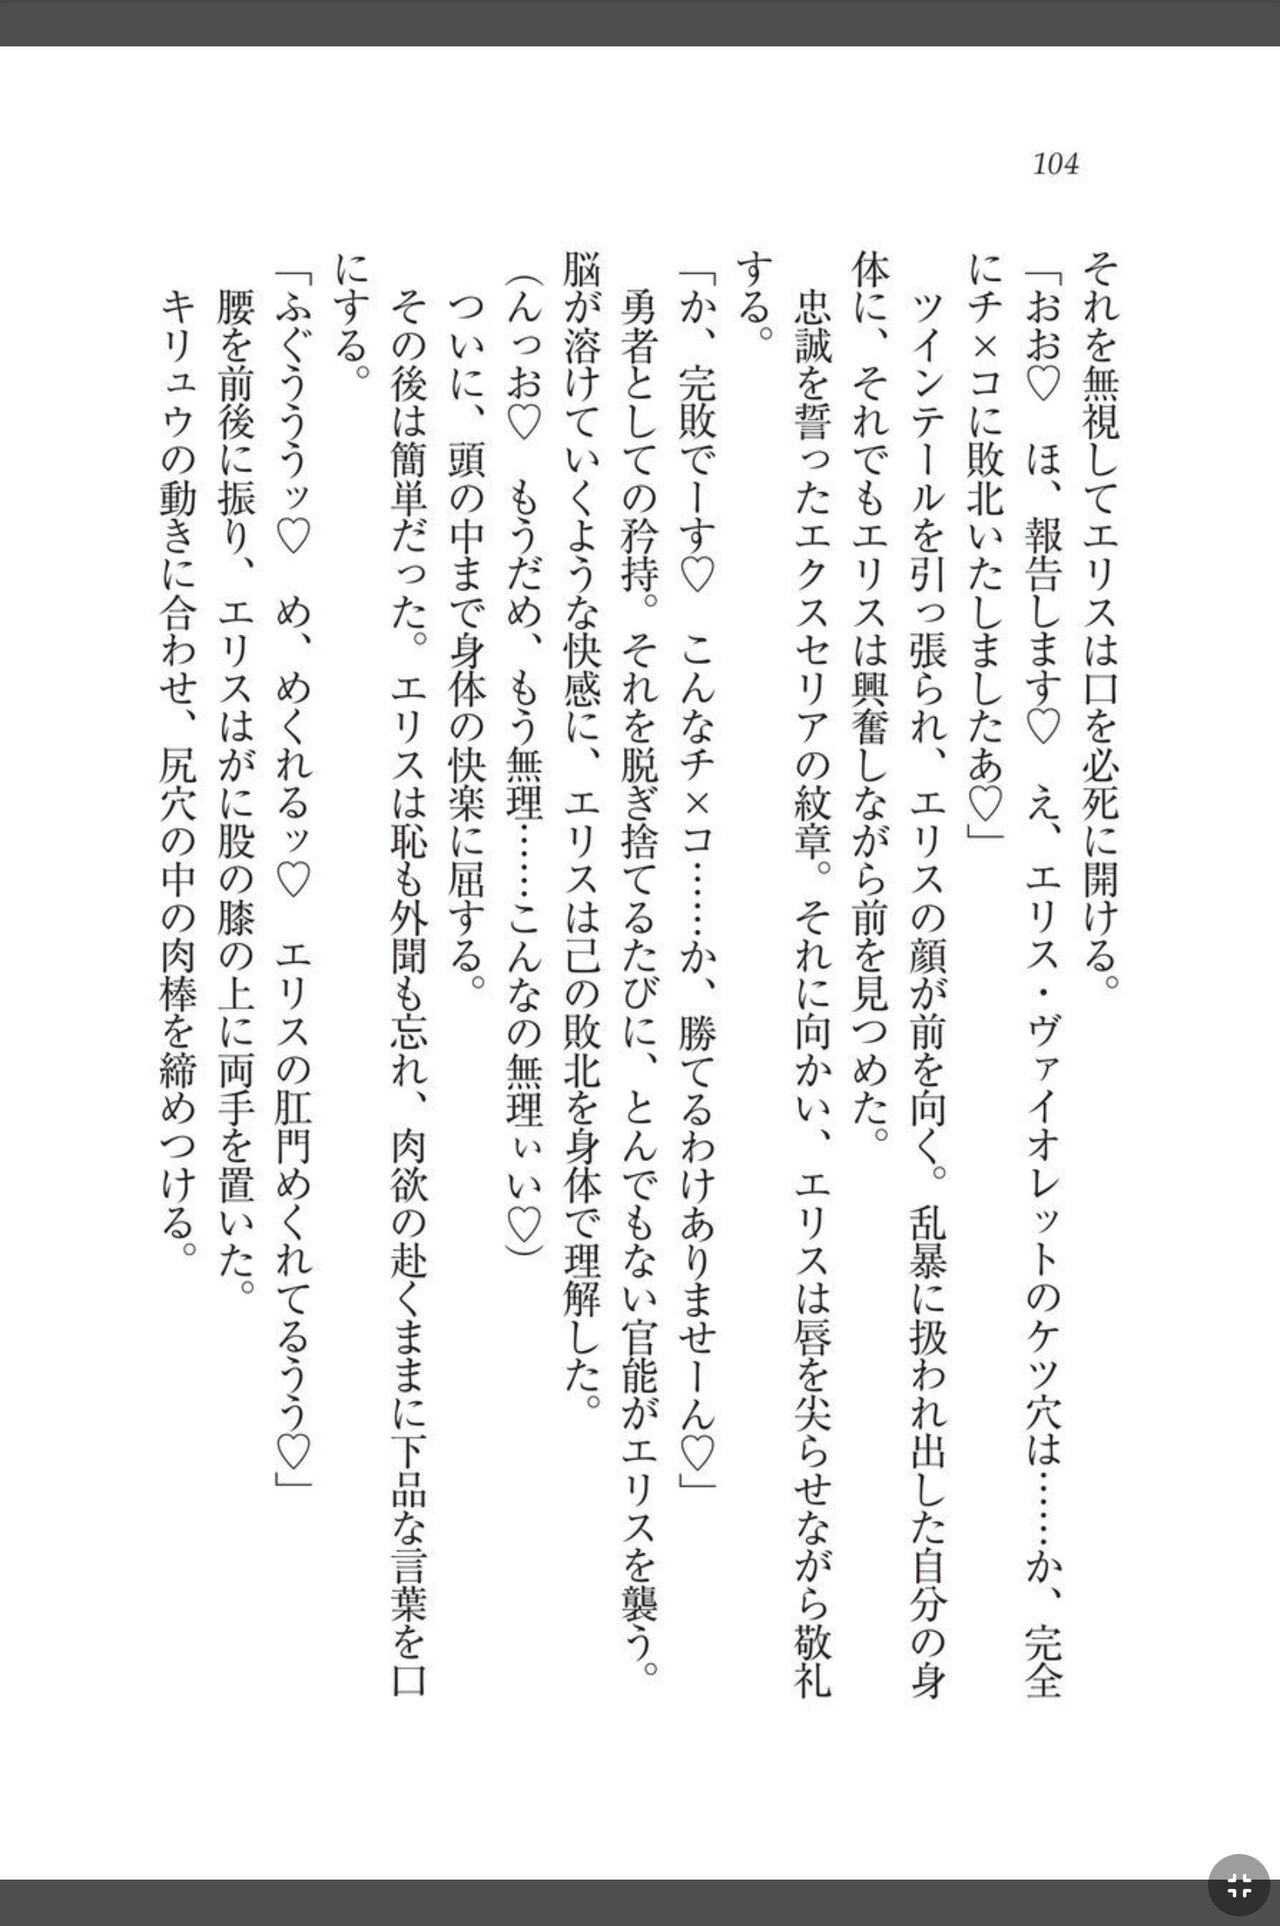 104
それを無視してエリスは口を必死に開ける。
「おお♡　ほ、報告します♡　え、エリス・ヴァイオレットのケツ穴は……か、完全
にチ×コに敗北いたしましたあ♡」
　ツインテールを引っ張られ、エリスの顔が前を向く。乱暴に扱われ出した自分の身
体に、それでもエリスは興奮しながら前を見つめた。
　忠誠を誓ったエクスセリアの紋章。それに向かい、エリスは唇を尖らせながら敬礼
する。
「か、完敗でーす♡　こんなチ×コ……か、勝てるわけありませーん♡」
　勇者としての矜持。それを脱ぎ捨てるたびに、とんでもない官能がエリスを襲う。
脳が溶けていくような快感に、エリスは己の敗北を身体で理解した。
（んっお♡　もうだめ、もう無理……こんなの無理ぃい♡）
　ついに、頭の中まで身体の快楽に屈する。
　その後は簡単だった。エリスは恥も外聞も忘れ、肉欲の赴くままに下品な言葉を口
にする。
「ふぐうううッ♡　め、めくれるッ♡　エリスの肛門めくれてるうう♡」
　腰を前後に振り、エリスはがに股の膝の上に両手を置いた。
　キリュウの動きに合わせ、尻穴の中の肉棒を締めつける。